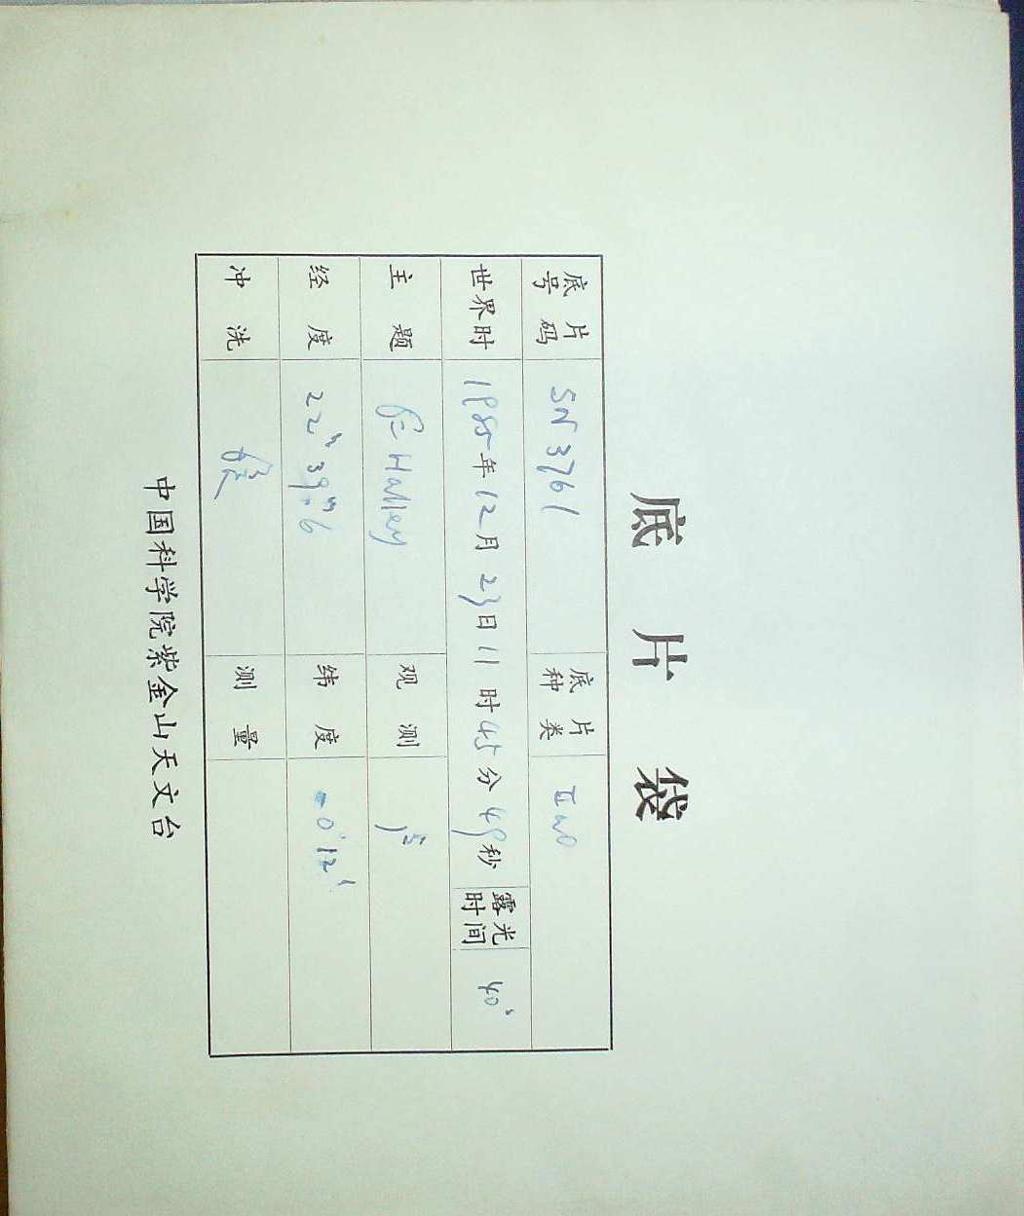 底片袋
底片号码 SN 3761 底片种类 IIaO
世界时 1985年12月23日11时45分49秒 露光时间 40s
主题 P= Halley 观测
经度 22h 39m.6 纬度 -0°12'
冲洗 测量
中国科学院紫金山天文台